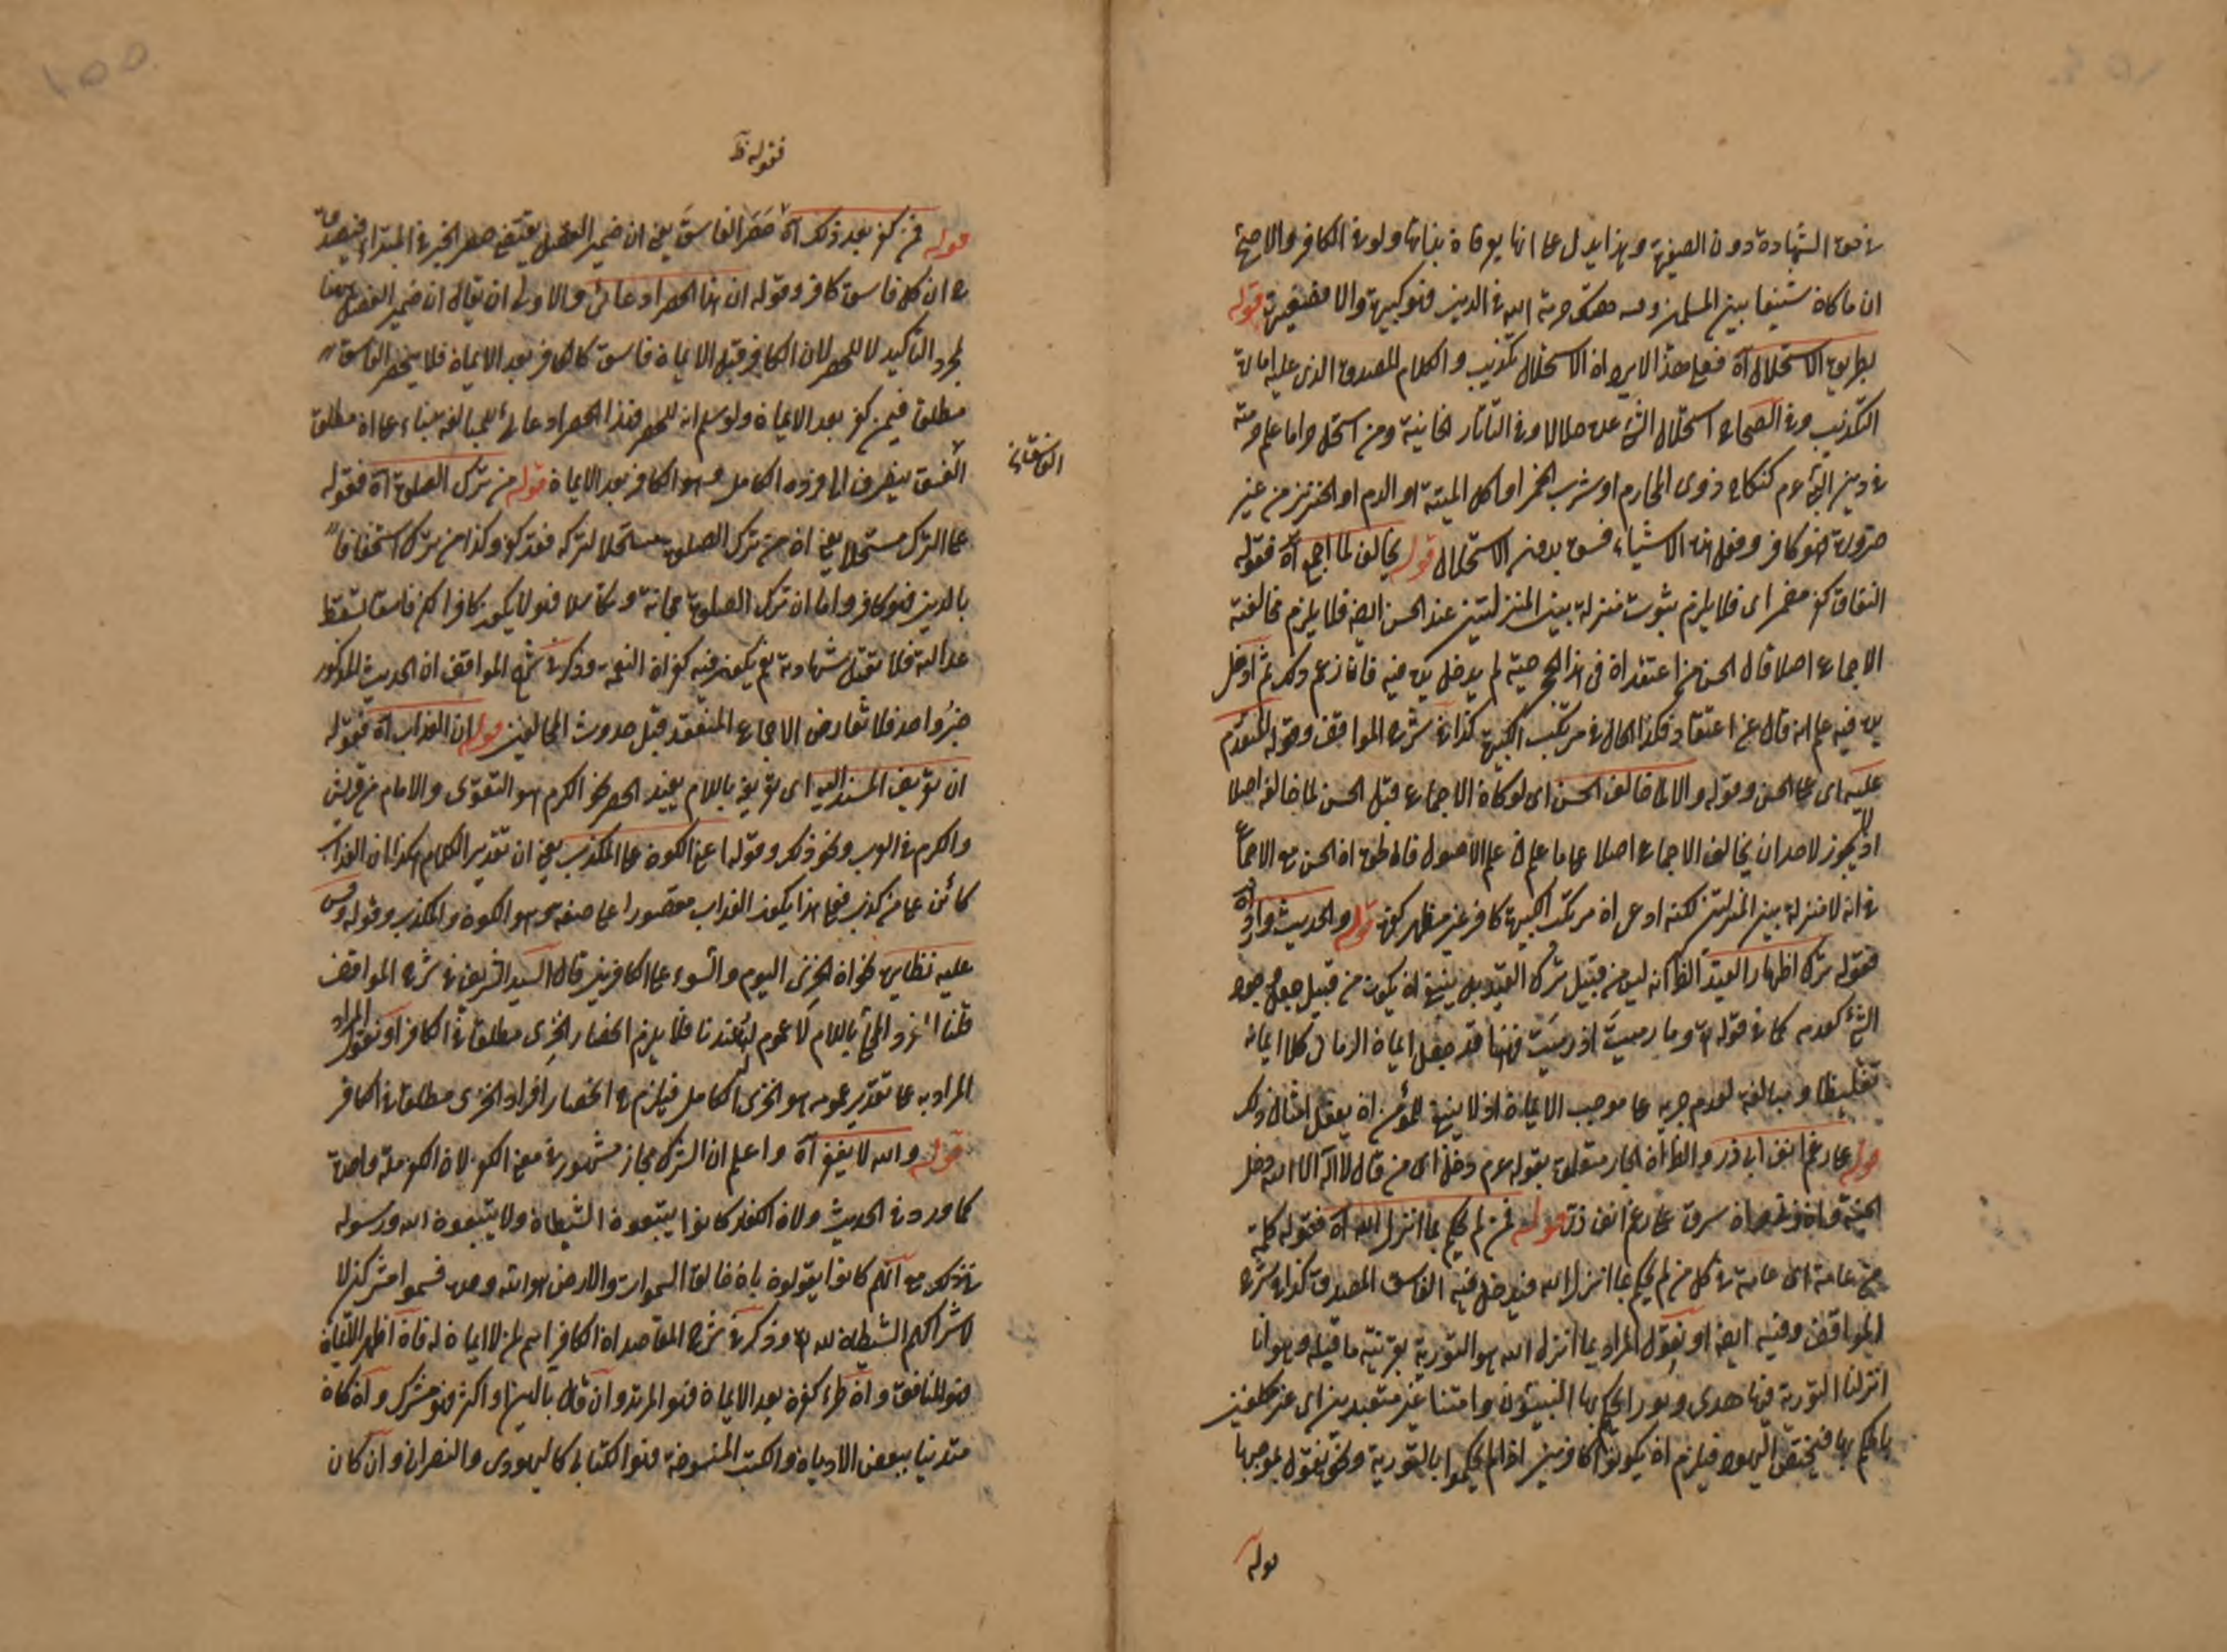 في حق الشهادة دون الصغيرة وهذا يدل على انها يوقاة بذاتها ولو في الكافر والاصح
ان ما كان شنيعا بين المسلمين وفيه هتك حرمة الله في الدين فهو كبيرة والا فصغيرة قوله
بطريق الاستحلال آه فعلى هذا لا يرد ان الاستحلال تكذيب والكلام المصدق الذي عليه امارة
التكذيب وفي الصحاح استحلال الشئ عده حلالا وفي التاتارخانية ومن استحل حراما علم حرمته
في دين النبي عم كنكاح ذوي المحارم او شرب الخمر او اكل الميتة او الدم او الخنزير من غير
ضرورة فهو كافر وفعل هذه الاشياء فسق بدون الاستحلال قوله مخالف لما اجمع آه فقوله
النفاق كفر مضمر اى فلا يلزم ثبوت منزلة بين المنزلتين عند الحسن ايضا فلا يلزم مخالفته
الاجماع اصلا قال الحسن من اعتقد ان في هذا الجحر حية لم يدخل يده فيه فاذا زعم ذلك ثم ادخل
يده فيه علم انه قال عن اعتقاد فكذا الحال في مرتكب الكبيرة كذا في شرح المواقف وقوله المتقدم
عليه اى على الحسن وقوله والا لما خالف الحسن اى لو كان الاجماع قبل الحسن لما خالفه اصلا
اذ لا يجوز لاحد ان يخالف الاجماع اصلا على ما علم في علم الاصول قال ان الحسن مع الاجماع
في انه لا منزلة بين المنزلتين لكنه ادعى ان مرتكب الكبيرة كافر غير مظهر كفره قوله والحديث وارد آه
فقوله ترك اظهار القيد الظ انه ليس من قبيل ترك القيد بل ينبغي ان يكون من قبيل جعل وجود
الشئ كعدمه كما في قوله تع وما رميت اذ رميت فههنا قد جعل ايمان الزماني كلا ايمان
تغليظا ومبالغة لعدم جريه على موجب الايمان اذ لا ينبغي للمؤمن ان يفعل امثال ذلك
قوله على رغم انف ابى ذر والظ ان الجار متعلق بقوله عم دخل اى من قال لا اله الا الله دخل
الجنة وان زنى وان سرق على رغم انف ذر قوله فمن لم يحكم بما انزل الله آه فقوله كلمة
من عامة اى عامة في كل من لم يحكم بما انزل الله فيدخل فيه الفاسق المصدق كذا في شرح
المواقف وفيه ايضا او نقول المراد بما انزل الله هو التورية بقرينة ما قبله وهو انا
انزلنا التورية فيها هدى ونور يحكم بها النبيون وامتنا غير متعبدين اى غير مكلفين
بالحكم بها فيختص اليهود فيلزم ان يكونوا كافرين اذا لم يحكموا بالتورية ونحن نقول بموجبها
قوله
فقوله ظ
قوله فمن كفر بعد ذلك آه حصر الفاسق يعني ان ضمير الفصل يقتضي حصر الخبر في المبتداء فيصدق
ح ان كل فاسق كافر وقوله ان هذا الحصر ادعائي والاولى ان يقال ان ضمير الفصل ههنا
لمجرد التاكيد لا للحصر لان الكافر قبل الايمان فاسق كالكافر بعد الايمان فلا ينحصر الفاسق
مطلقا فيمن كفر بعد الايمان ولو سلم انه للحصر فهذا الحصر ادعائي للمبالغة بناء على ان مطلق
الفسق ينصرف الى فرده الكامل وهو الكافر بعد الايمان قوله من ترك الصلوة آه فقوله
على الترك مستحلا يعني ان من ترك الصلوة مستحلا لتركه فقد كفر وكذا من ترك استخفافا
بالدين فهو كافر واما ان ترك الصلوة مجانة وتكاسلا فهو لا يكون كافرا لكن فاسقا تسقط
عدالته فلا تقبل شهادته ثم يكون فيه كفران النعمة وذكر في شرح المواقف ان الحديث المذكور
خبر واحد فلا تعارض الاجماع المنعقد قبل حدوث المخالفين قوله ان العذاب آه فقوله
ان تعريف المسند اليه اى تعريفه باللام يفيد الحصر نحو الكرم هو التقوى والامام من قريش
والكرم في العرب ونحو ذلك وقوله اعنى الكون على المكذب يعني ان تقدير الكلام هكذا ان العذاب
كائن على من كذب فعلى هذا يكون العذاب مقصورا على صفة هو الكون والكذب وقوله وقس
عليه نظايره نحو ان الخزي اليوم والسوء على الكافرين قال السيد الشريف في شرح المواقف
قلنا المفرد المحلى باللام لا عموم له عندنا فلا يلزم انحصار الخزي مطلقا في الكافر او نقول المراد
المراد به على تقدير عمومه هو الخزي الكامل فيلزم ح انحصار افراد الخزي مطلقا في الكافر
قوله والله لا يغفر آه واعلم ان الشرك مجاز مشهور في معنى الكفر لان الكفر ملة واحدة
كما ورد في الحديث ولان الكفار كانوا يتبعون الشيطان ولا يتبعون الله ورسوله
في ذلك مع انهم كانوا يقولون بان خالق السموات والارض هو الله وحده فسموا مشركين
لاشراكهم الشيطان لله تع وذكر في شرح المقاصد ان الكافر اسم لمن لا ايمان له فان اظهر الايمان
فهو المنافق وان طرء كفره بعد الايمان فهو المرتد وان قال بآلهين او اكثر فهو مشرك وان كان
متدينا ببعض الاديان والكتب المنسوخة فهو الكتابي كاليهودى والنصرانى وان كان